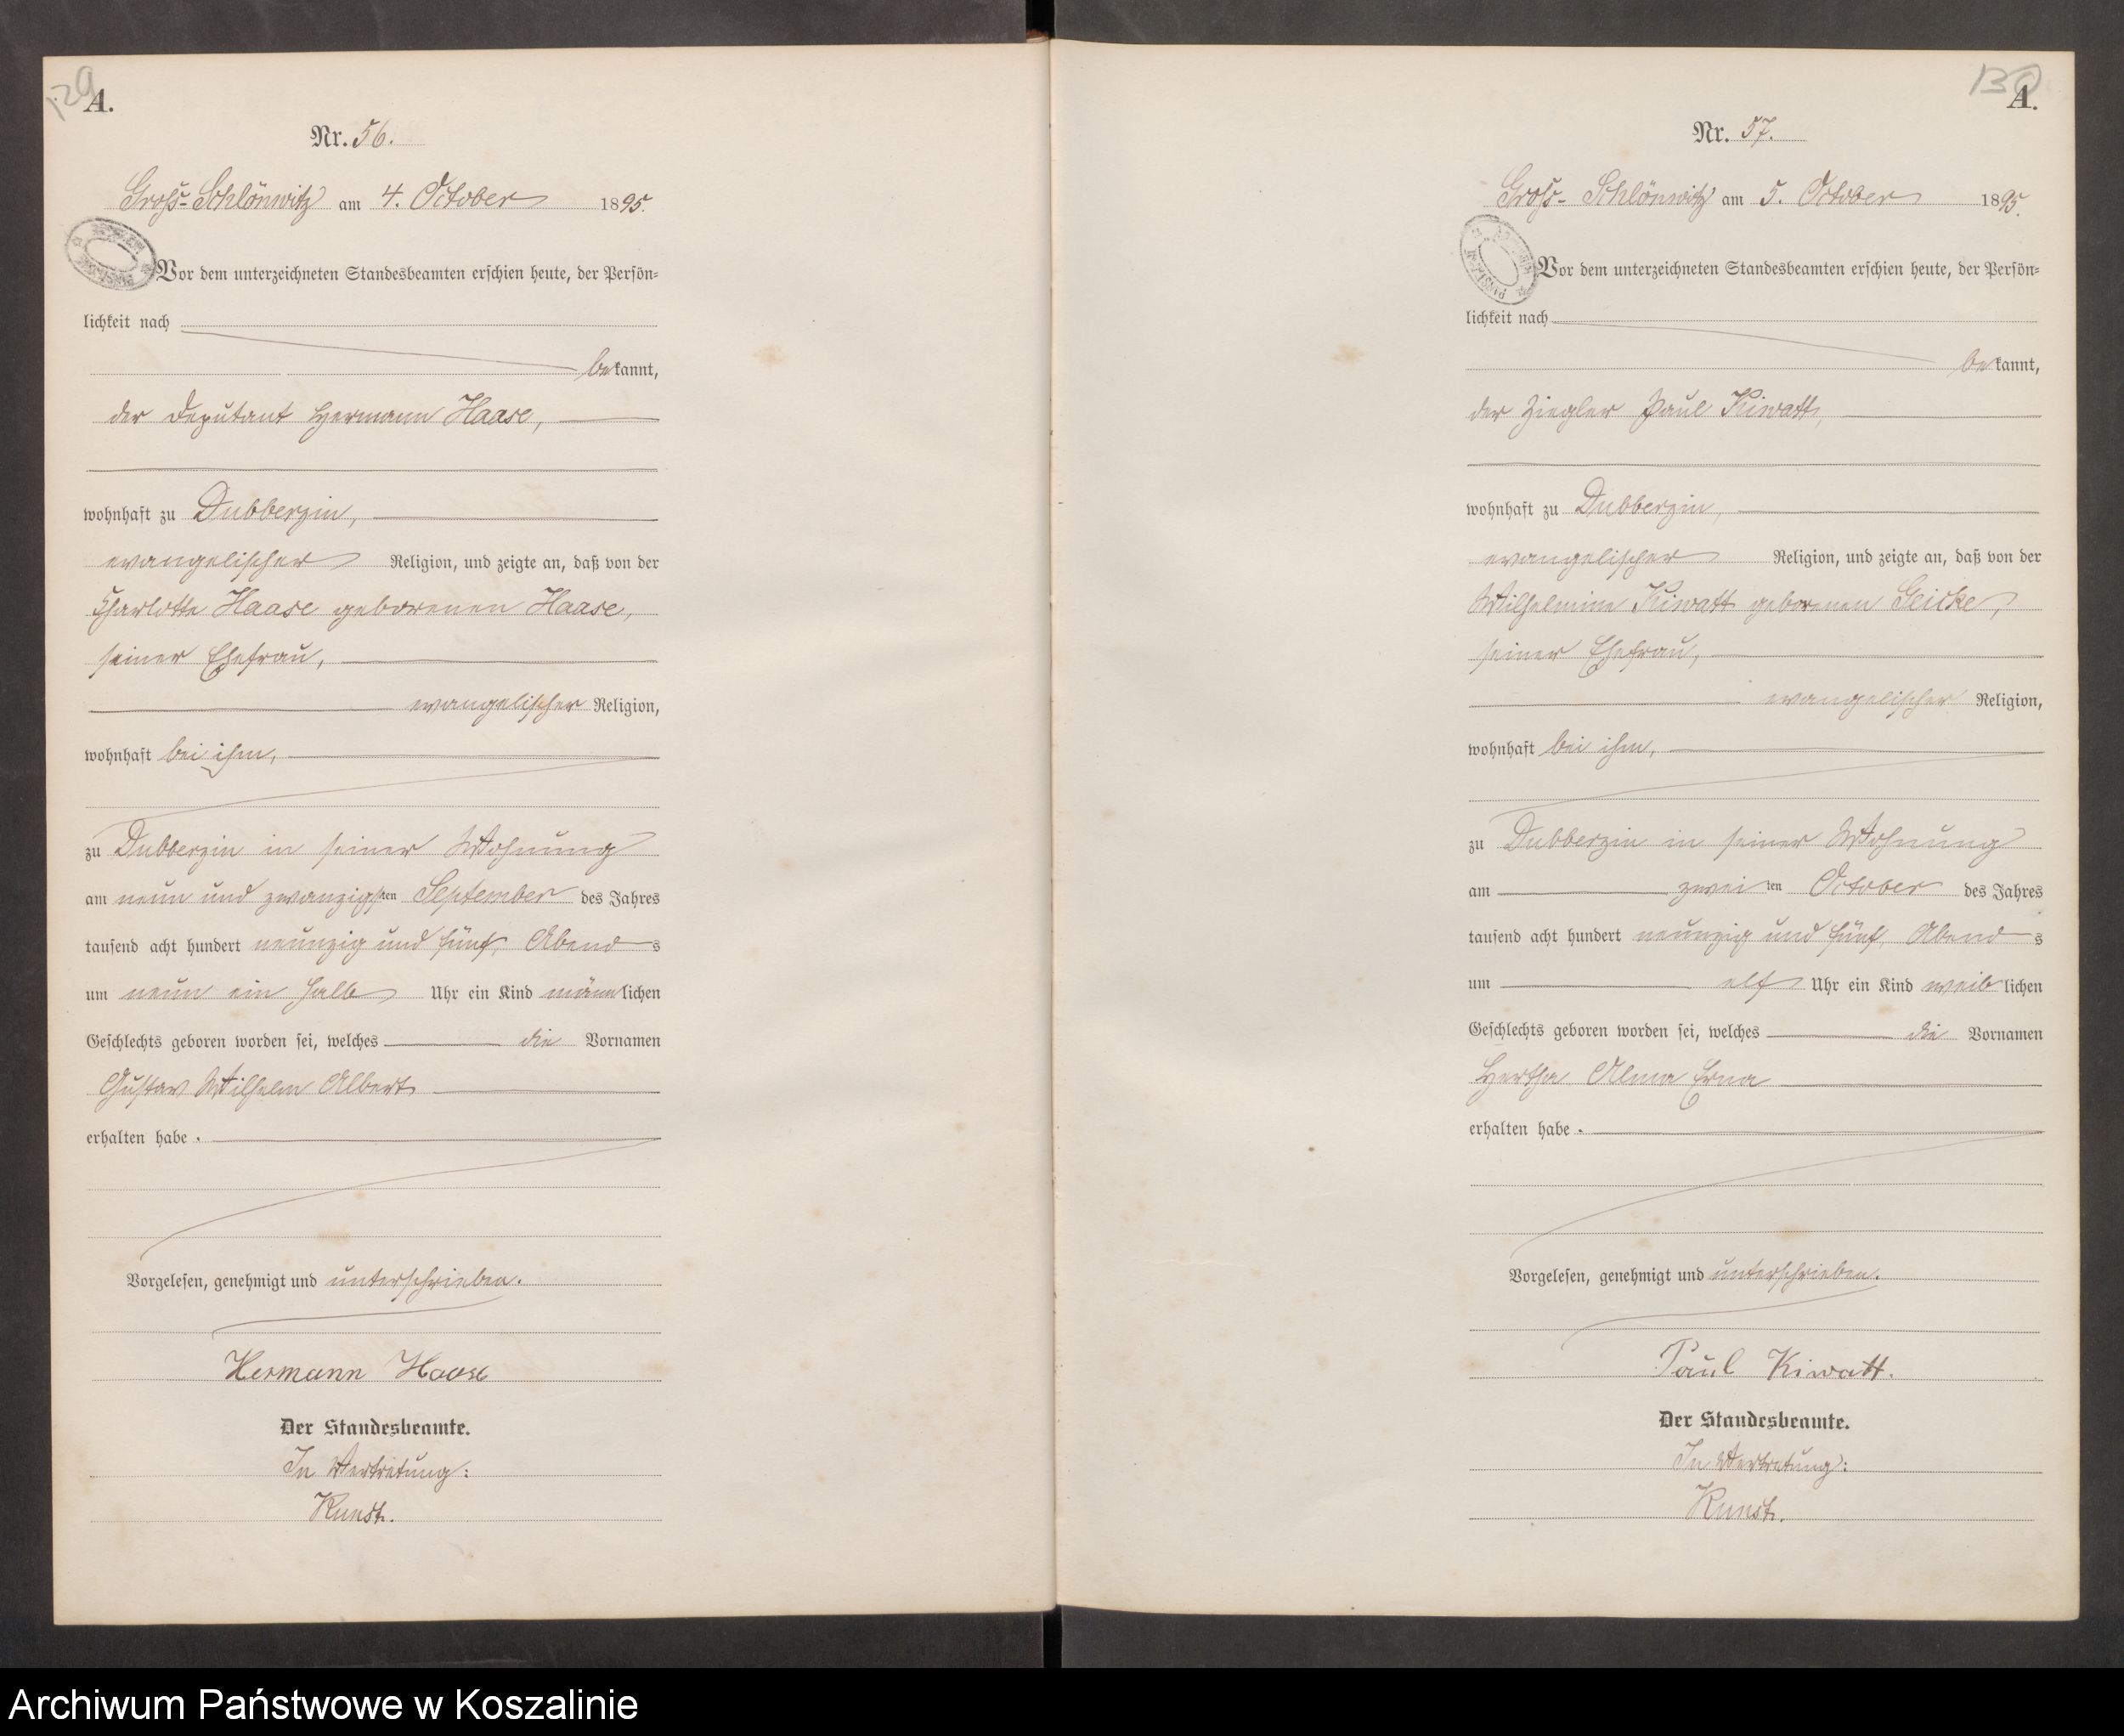 129
A.
Nr. 56.
Groß-Schlönwitz am 4. October 1895.
Vor dem unterzeichneten Standesbeamten erschien heute, der Persön=
lichkeit nach
bekannt,
der Deputant Hermann Haase,
wohnhaft zu Dubberzin,
evangelischer Religion, und zeigte an, daß von der
Charlotte Haase geborenen Haase,
seiner Ehefrau,
evangelischer Religion,
wohnhaft bei ihm,
zu Dubberzin in seiner Wohnung
am neun und zwanzigsten September des Jahres
tausend acht hundert neunzig und fünf, Abends
um neun ein halb Uhr ein Kind männlichen
Geschlechts geboren worden sei, welches die Vornamen
Gustav Wilhelm Albert
erhalten habe.
Vorgelesen, genehmigt und unterschrieben.
Hermann Haase
Der Standesbeamte.
In Vertretung:
Kunst.
130
A.
Nr. 57.
Groß-Schlönwitz am 5. October 1895.
Vor dem unterzeichneten Standesbeamten erschien heute, der Persön=
lichkeit nach
bekannt,
der Ziegler Paul Kiwatt,
wohnhaft zu Dubberzin,
evangelischer Religion, und zeigte an, daß von der
Wilhelmine Kiwatt geborenen Geicke,
seiner Ehefrau,
evangelischer Religion,
wohnhaft bei ihm,
zu Dubberzin in seiner Wohnung
am zweiten October des Jahres
tausend acht hundert neunzig und fünf, Abends
um elf Uhr ein Kind weiblichen
Geschlechts geboren worden sei, welches die Vornamen
Hertha Alma Erna
erhalten habe.
Vorgelesen, genehmigt und unterschrieben.
Paul Kiwatt.
Der Standesbeamte.
In Vertretung:
Kunst.
Archiwum Państwowe w Koszalinie